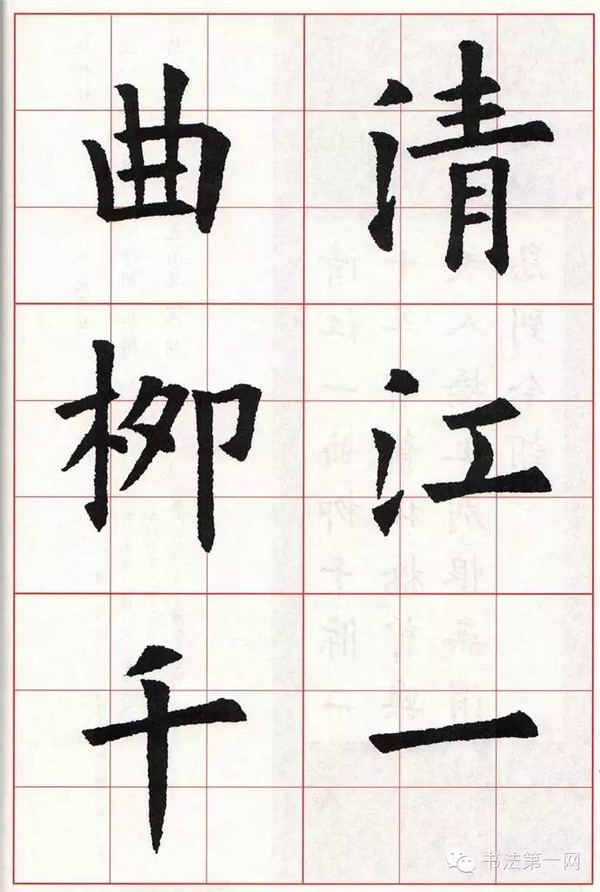 清江一
曲柳千
书法第一网